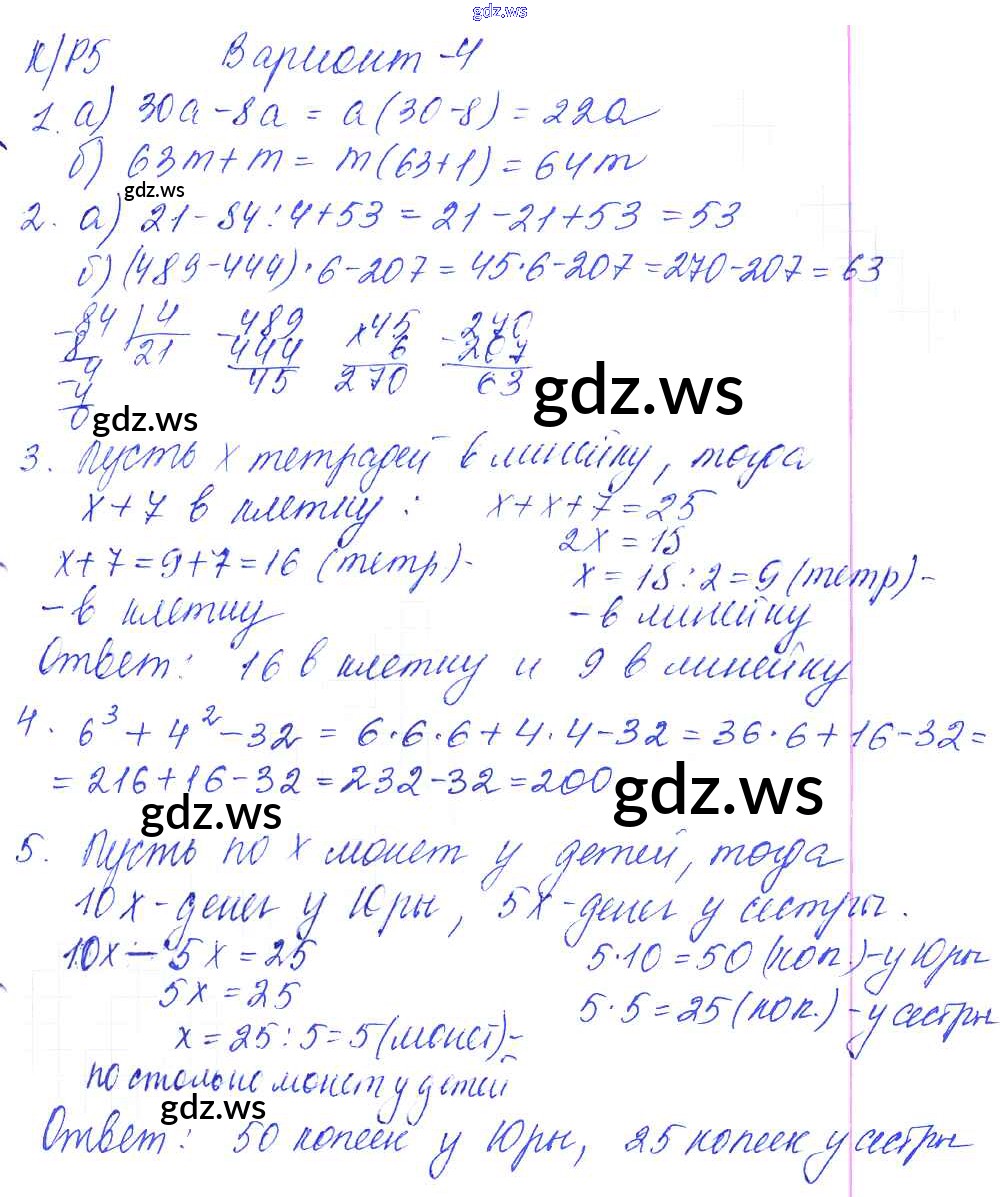 gdz.ws
К/Р5 Вариант-4
1. а) 30a - 8a = a(30-8) = 22a
б) 63m + m = m(63+1) = 64m
gdz.ws
2. а) 21 - 84:4+53 = 21-21+53 = 53
б) (489-444)·6-207 = 45·6-207 = 270-207 = 63
-84 | 4 -489 ×45 -270
8 21 444 6 207
-4 45 270 63
4
0
gdz.ws gdz.ws
3. Пусть x тетрадей в линейку, тогда
x+7 в клетку: x+x+7=25
2x = 18
x+7=9+7=16 (тетр)- x = 18:2=9 (тетр)-
-в клетку -в линейку
Ответ: 16 в клетку и 9 в линейку
4. 6³ + 4² - 32 = 6·6·6+4·4-32 = 36·6+16-32=
= 216+16-32 = 232-32 = 200
gdz.ws gdz.ws
5. Пусть по x монет у детей, тогда
10x-денег у Юры, 5x-денег у сестры.
10x - 5x = 25 5·10 = 50 (коп.)-у Юры
5x = 25 5·5 = 25 (коп.) -у сестры
x = 25:5=5 (монет)-
по столько монет у детей
gdz.ws
Ответ: 50 копеек у Юры, 25 копеек у сестры